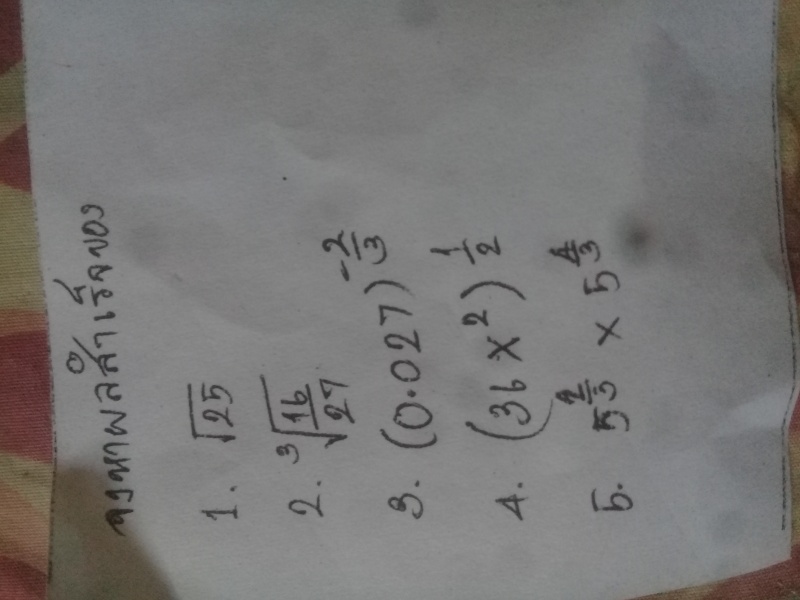 จงหาผลสำเร็จของ
1. √25
2. ³√(16/27)
3. (0.027)^(-2/3)
4. (36x²)^(1/2)
5. 5^(2/3) × 5^(4/3)